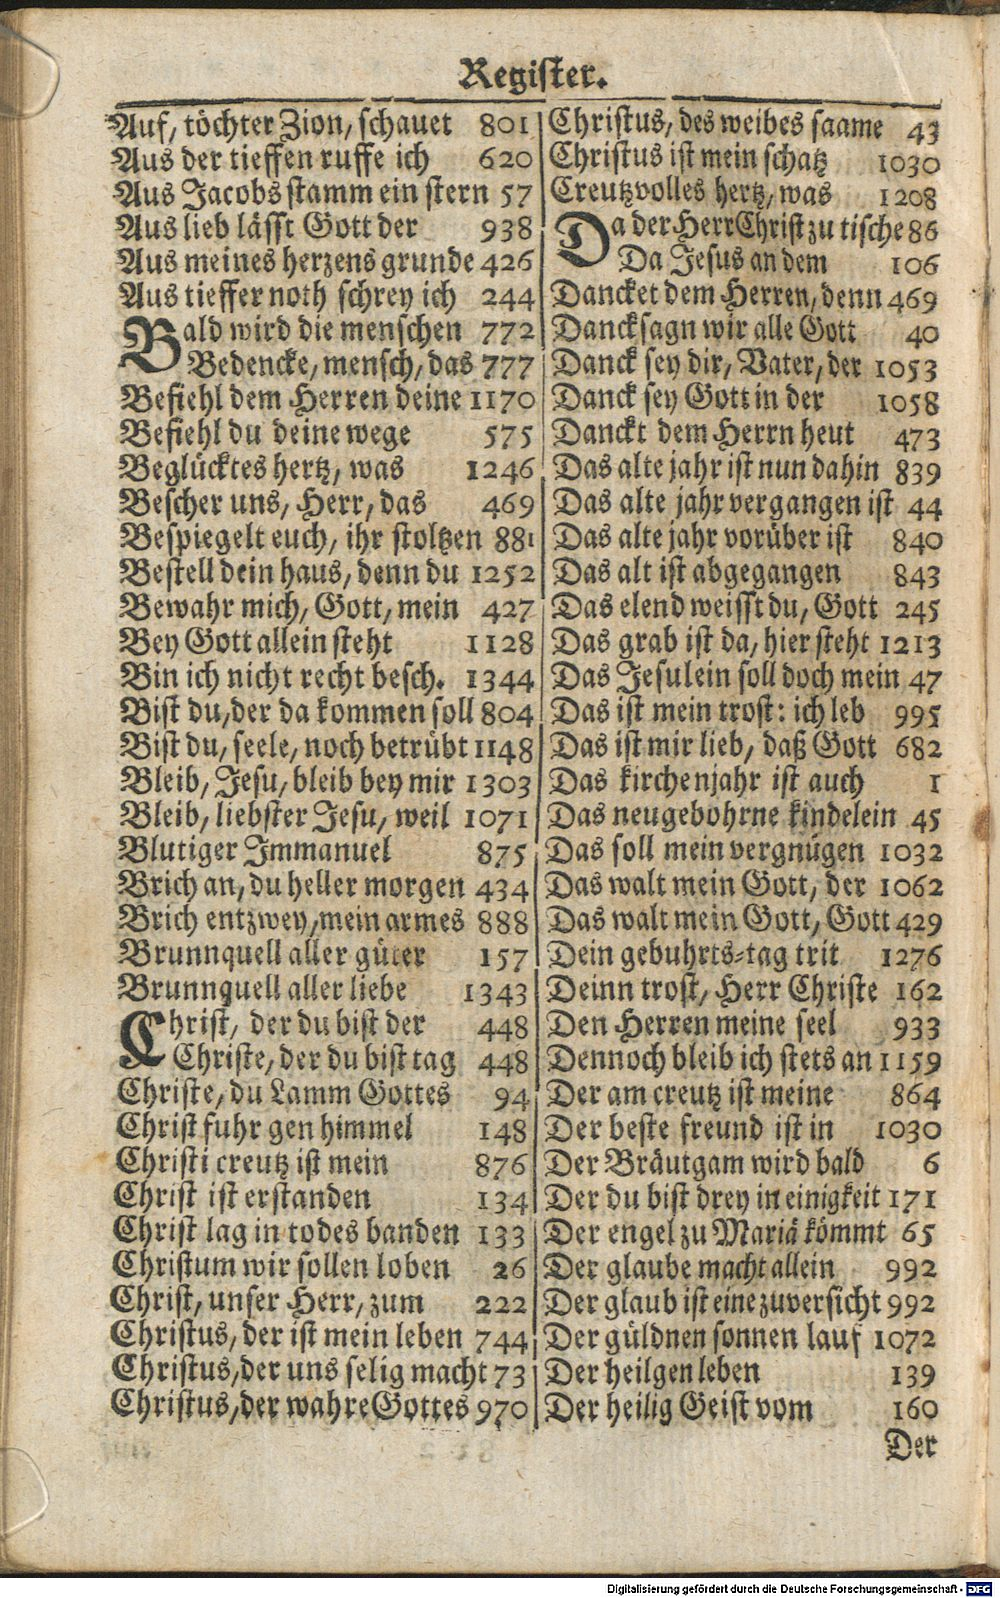 Register.
Auf, töchter Zion, schauet 801
Aus der tieffen ruffe ich 620
Aus Jacobs stamm ein stern 57
Aus lieb lässt Gott der 938
Aus meines herzens grunde 426
Aus tieffer noth schrey ich 244
Bald wird die menschen 772
Bedencke, mensch, das 777
Befiehl dem Herren deine 1170
Befiehl du deine wege 575
Beglücktes hertz, was 1246
Bescher uns, Herr, das 469
Bespiegelt euch, ihr stoltzen 881
Bestell dein haus, denn du 1252
Bewahr mich, Gott, mein 427
Bey Gott allein steht 1128
Bin ich nicht recht besch. 1344
Bist du, der da kommen soll 804
Bist du, seele, noch betrübt 1148
Bleib, Jesu, bleib bey mir 1303
Bleib, liebster Jesu, weil 1071
Blutiger Immanuel 875
Brich an, du heller morgen 434
Brich entzwey, mein armes 888
Brunnquell aller güter 157
Brunnquell aller liebe 1343
Christ, der du bist der 448
Christe, der du bist tag 448
Christe, du Lamm Gottes 94
Christ fuhr gen himmel 148
Christi creutz ist mein 876
Christ ist erstanden 134
Christ lag in todes banden 133
Christum wir sollen loben 26
Christ, unser Herr, zum 222
Christus, der ist mein leben 744
Christus, der uns selig macht 73
Christus, der wahre Gottes 970
Christus, des weibes saame 43
Christus ist mein schatz 1030
Creutzvolles hertz, was 1208
Da der Herr Christ zu tische 86
Da Jesus an dem 106
Dancket dem Herren, denn 469
Dancksagn wir alle Gott 40
Danck sey dir, Vater, der 1053
Danck sey Gott in der 1058
Danckt dem Herrn heut 473
Das alte jahr ist nun dahin 839
Das alte jahr vergangen ist 44
Das alte jahr vorüber ist 840
Das alt ist abgegangen 843
Das elend weisst du, Gott 245
Das grab ist da, hier steht 1213
Das Jesulein soll doch mein 47
Das ist mein trost: ich leb 995
Das ist mir lieb, daß Gott 682
Das kirchenjahr ist auch 1
Das neugebohrne kindelein 45
Das soll mein vergnügen 1032
Das walt mein Gott, der 1062
Das walt mein Gott, Gott 429
Dein gebuhrts-tag trit 1276
Deinn trost, Herr Christe 162
Den Herren meine seel 933
Dennoch bleib ich stets an 1159
Der am creutz ist meine 864
Der beste freund ist in 1030
Der Bräutgam wird bald 6
Der du bist drey in einigkeit 171
Der engel zu Mariä kömmt 65
Der glaube macht allein 992
Der glaub ist eine zuversicht 992
Der güldnen sonnen lauf 1072
Der heilgen leben 139
Der heilig Geist vom 160
Der
Digitalisierung gefördert durch die Deutsche Forschungsgemeinschaft - DFG